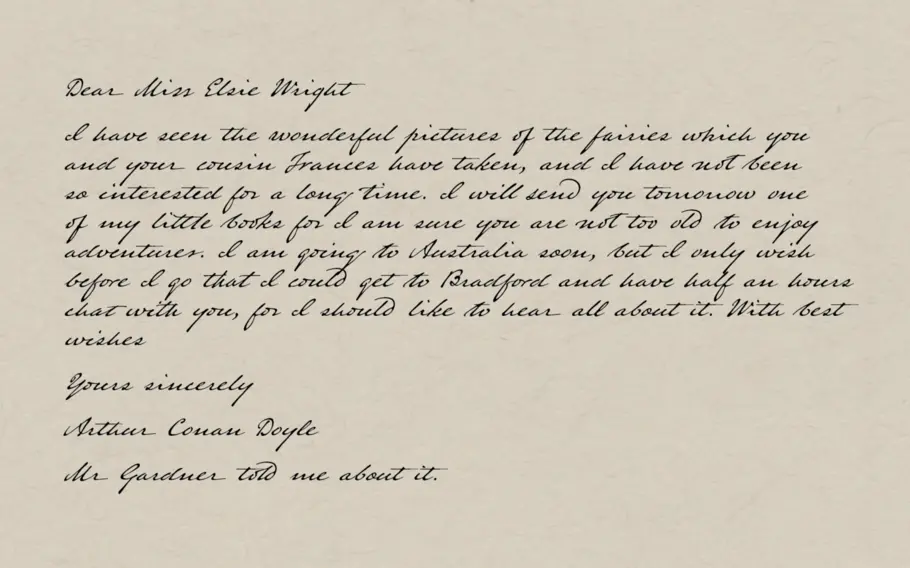 Dear Miss Elsie Wright
I have seen the wonderful pictures of the fairies which you
and your cousin Frances have taken, and I have not been
so interested for a long time. I will send you tomorrow one
of my little books for I am sure you are not too old to enjoy
adventures. I am going to Australia soon, but I only wish
before I go that I could get to Bradford and have half an hours
chat with you, for I should like to hear all about it. With best
wishes
Yours sincerely
Arthur Conan Doyle
Mr Gardner told me about it.